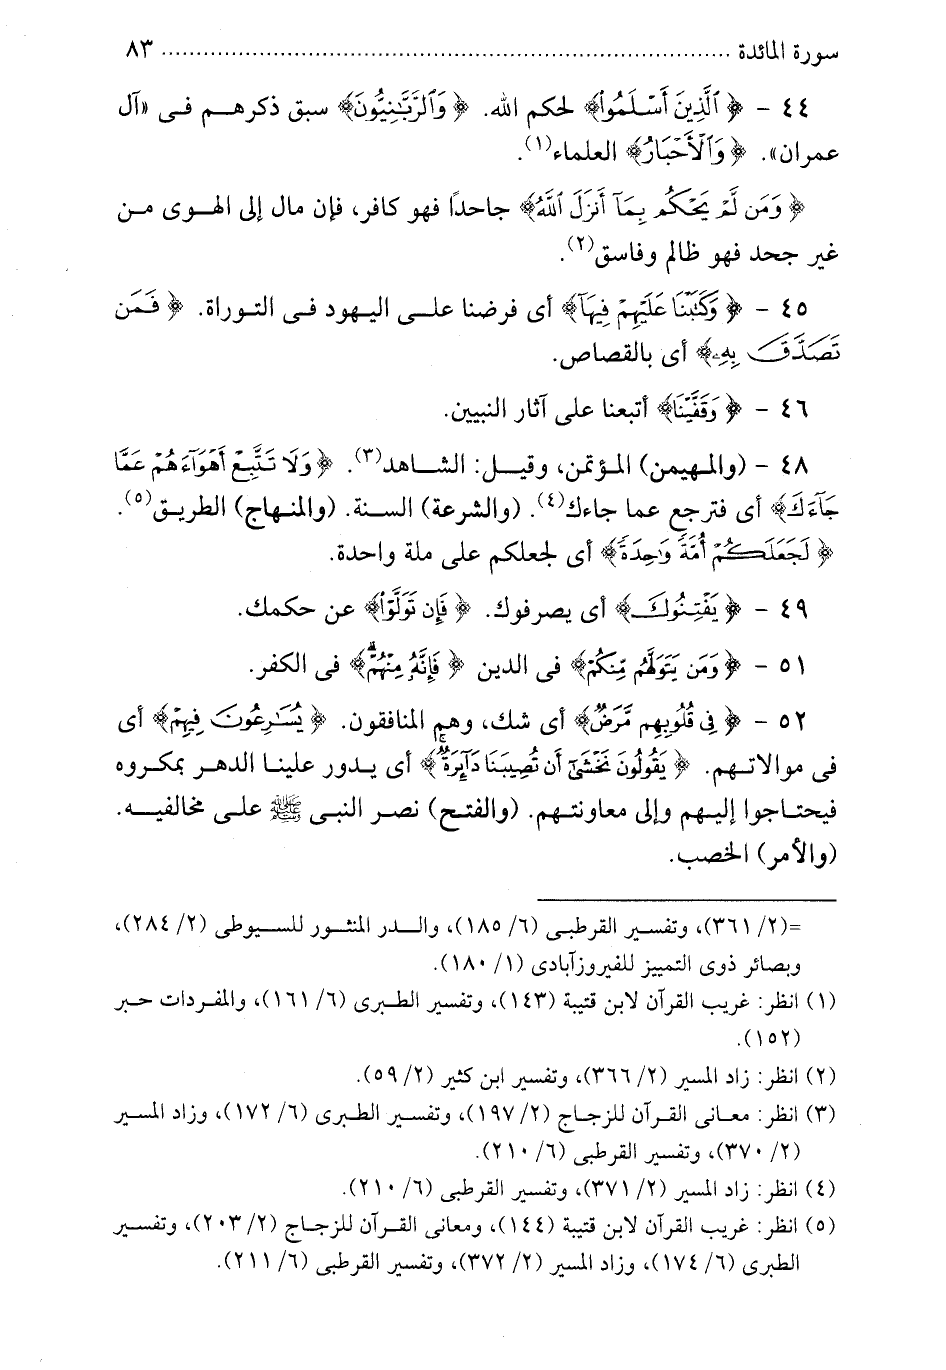 سورة المائدة ................................................................ ٨٣
٤٤ - ﴿ ٱلَّذِينَ أَسْلَمُوا۟﴾ لحكم الله. ﴿ وَٱلرَّبَّٰنِيُّونَ﴾ سبق ذكرهم فى «آل
عمران». ﴿ وَٱلْأَحْبَارُ﴾ العلماء(١).
﴿ وَمَن لَّمْ يَحْكُم بِمَآ أَنزَلَ ٱللَّهُ﴾ جاحدًا فهو كافر، فإن مال إلى الهوى من
غير جحد فهو ظالم وفاسق(٢).
٤٥ - ﴿ وَكَتَبْنَا عَلَيْهِمْ فِيهَآ﴾ أى فرضنا على اليهود فى التوراة. ﴿ فَمَن
تَصَدَّقَ بِهِۦ﴾ أى بالقصاص.
٤٦ - ﴿ وَقَفَّيْنَا﴾ أتبعنا على آثار النبيين.
٤٨ - (والمهيمن) المؤتمن، وقيل: الشاهد(٣). ﴿ وَلَا تَتَّبِعْ أَهْوَآءَهُمْ عَمَّا
جَآءَكَ﴾ أى فترجع عما جاءك(٤). (والشرعة) السنة. (والمنهاج) الطريق(٥).
﴿ لَجَعَلَكُمْ أُمَّةً وَٰحِدَةً﴾ أى لجعلكم على ملة واحدة.
٤٩ - ﴿ يَفْتِنُوكَ﴾ أى يصرفوك. ﴿ فَإِن تَوَلَّوْا۟﴾ عن حكمك.
٥١ - ﴿ وَمَن يَتَوَلَّهُم مِّنكُمْ﴾ فى الدين ﴿ فَإِنَّهُۥ مِنْهُمْ ۗ﴾ فى الكفر.
٥٢ - ﴿ فِى قُلُوبِهِم مَّرَضٌ﴾ أى شك، وهم المنافقون. ﴿ يُسَٰرِعُونَ فِيهِمْ﴾ أى
فى موالاتهم. ﴿ يَقُولُونَ نَخْشَىٰٓ أَن تُصِيبَنَا دَآئِرَةٌ ۚ﴾ أى يدور علينا الدهر بمكروه
فيحتاجوا إليهم وإلى معاونتهم. (والفتح) نصر النبى ﷺ على مخالفيه.
(والأمر) الخصب.
=(٢/ ٣٦١)، وتفسير القرطبى (٦/ ١٨٥)، والدر المنثور للسيوطى (٢/ ٢٨٤)،
وبصائر ذوى التمييز للفيروزآبادى (١/ ١٨٠).
(١) انظر: غريب القرآن لابن قتيبة (١٤٣)، وتفسير الطبرى (٦/ ١٦١)، والمفردات حبر
(١٥٢).
(٢) انظر: زاد المسير (٢/ ٣٦٦)، وتفسير ابن كثير (٢/ ٥٩).
(٣) انظر: معانى القرآن للزجاج (٢/ ١٩٧)، وتفسير الطبرى (٦/ ١٧٢)، وزاد المسير
(٢/ ٣٧٠)، وتفسير القرطبى (٦/ ٢١٠).
(٤) انظر: زاد المسير (٢/ ٣٧١)، وتفسير القرطبى (٦/ ٢١٠).
(٥) انظر: غريب القرآن لابن قتيبة (١٤٤)، ومعانى القرآن للزجاج (٢/ ٢٠٣)، وتفسير
الطبرى (٦/ ١٧٤)، وزاد المسير (٢/ ٣٧٢)، وتفسير القرطبى (٦/ ٢١١).